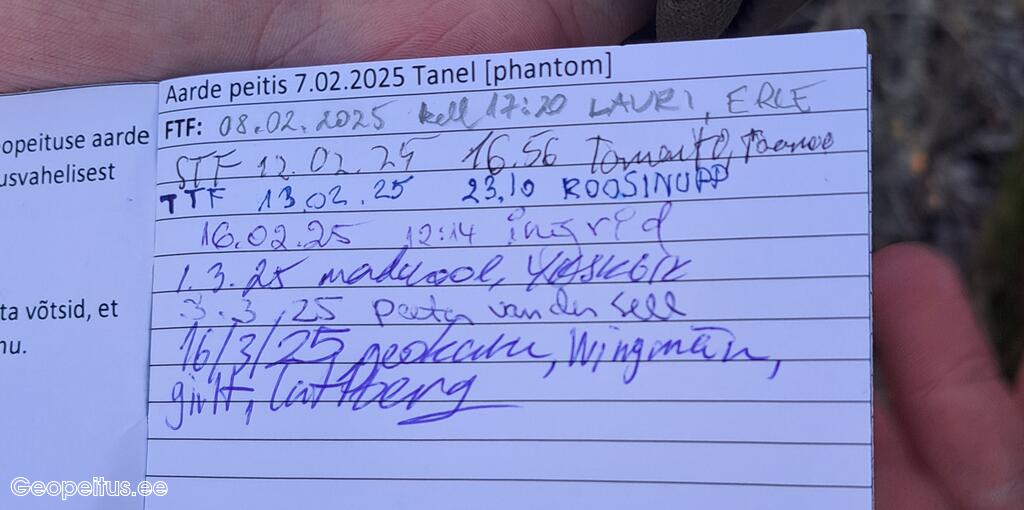 opeituse aarde
usvahelisest
ta võtsid, et
nu.
Aarde peitis 7.02.2025 Tanel [phantom]
FTF: 08.02.2025 kell 17:20 LAURI, ERLE
STF 12.02.25 16.56
TTF 13.02.25 23.10 ROOSINUPP
16.02.25 12:14 ingrid
1.3.25
3.3.25 Peeter van der Sell
16/3/25 geokaru, Wingmän,
Geopeitus.ee